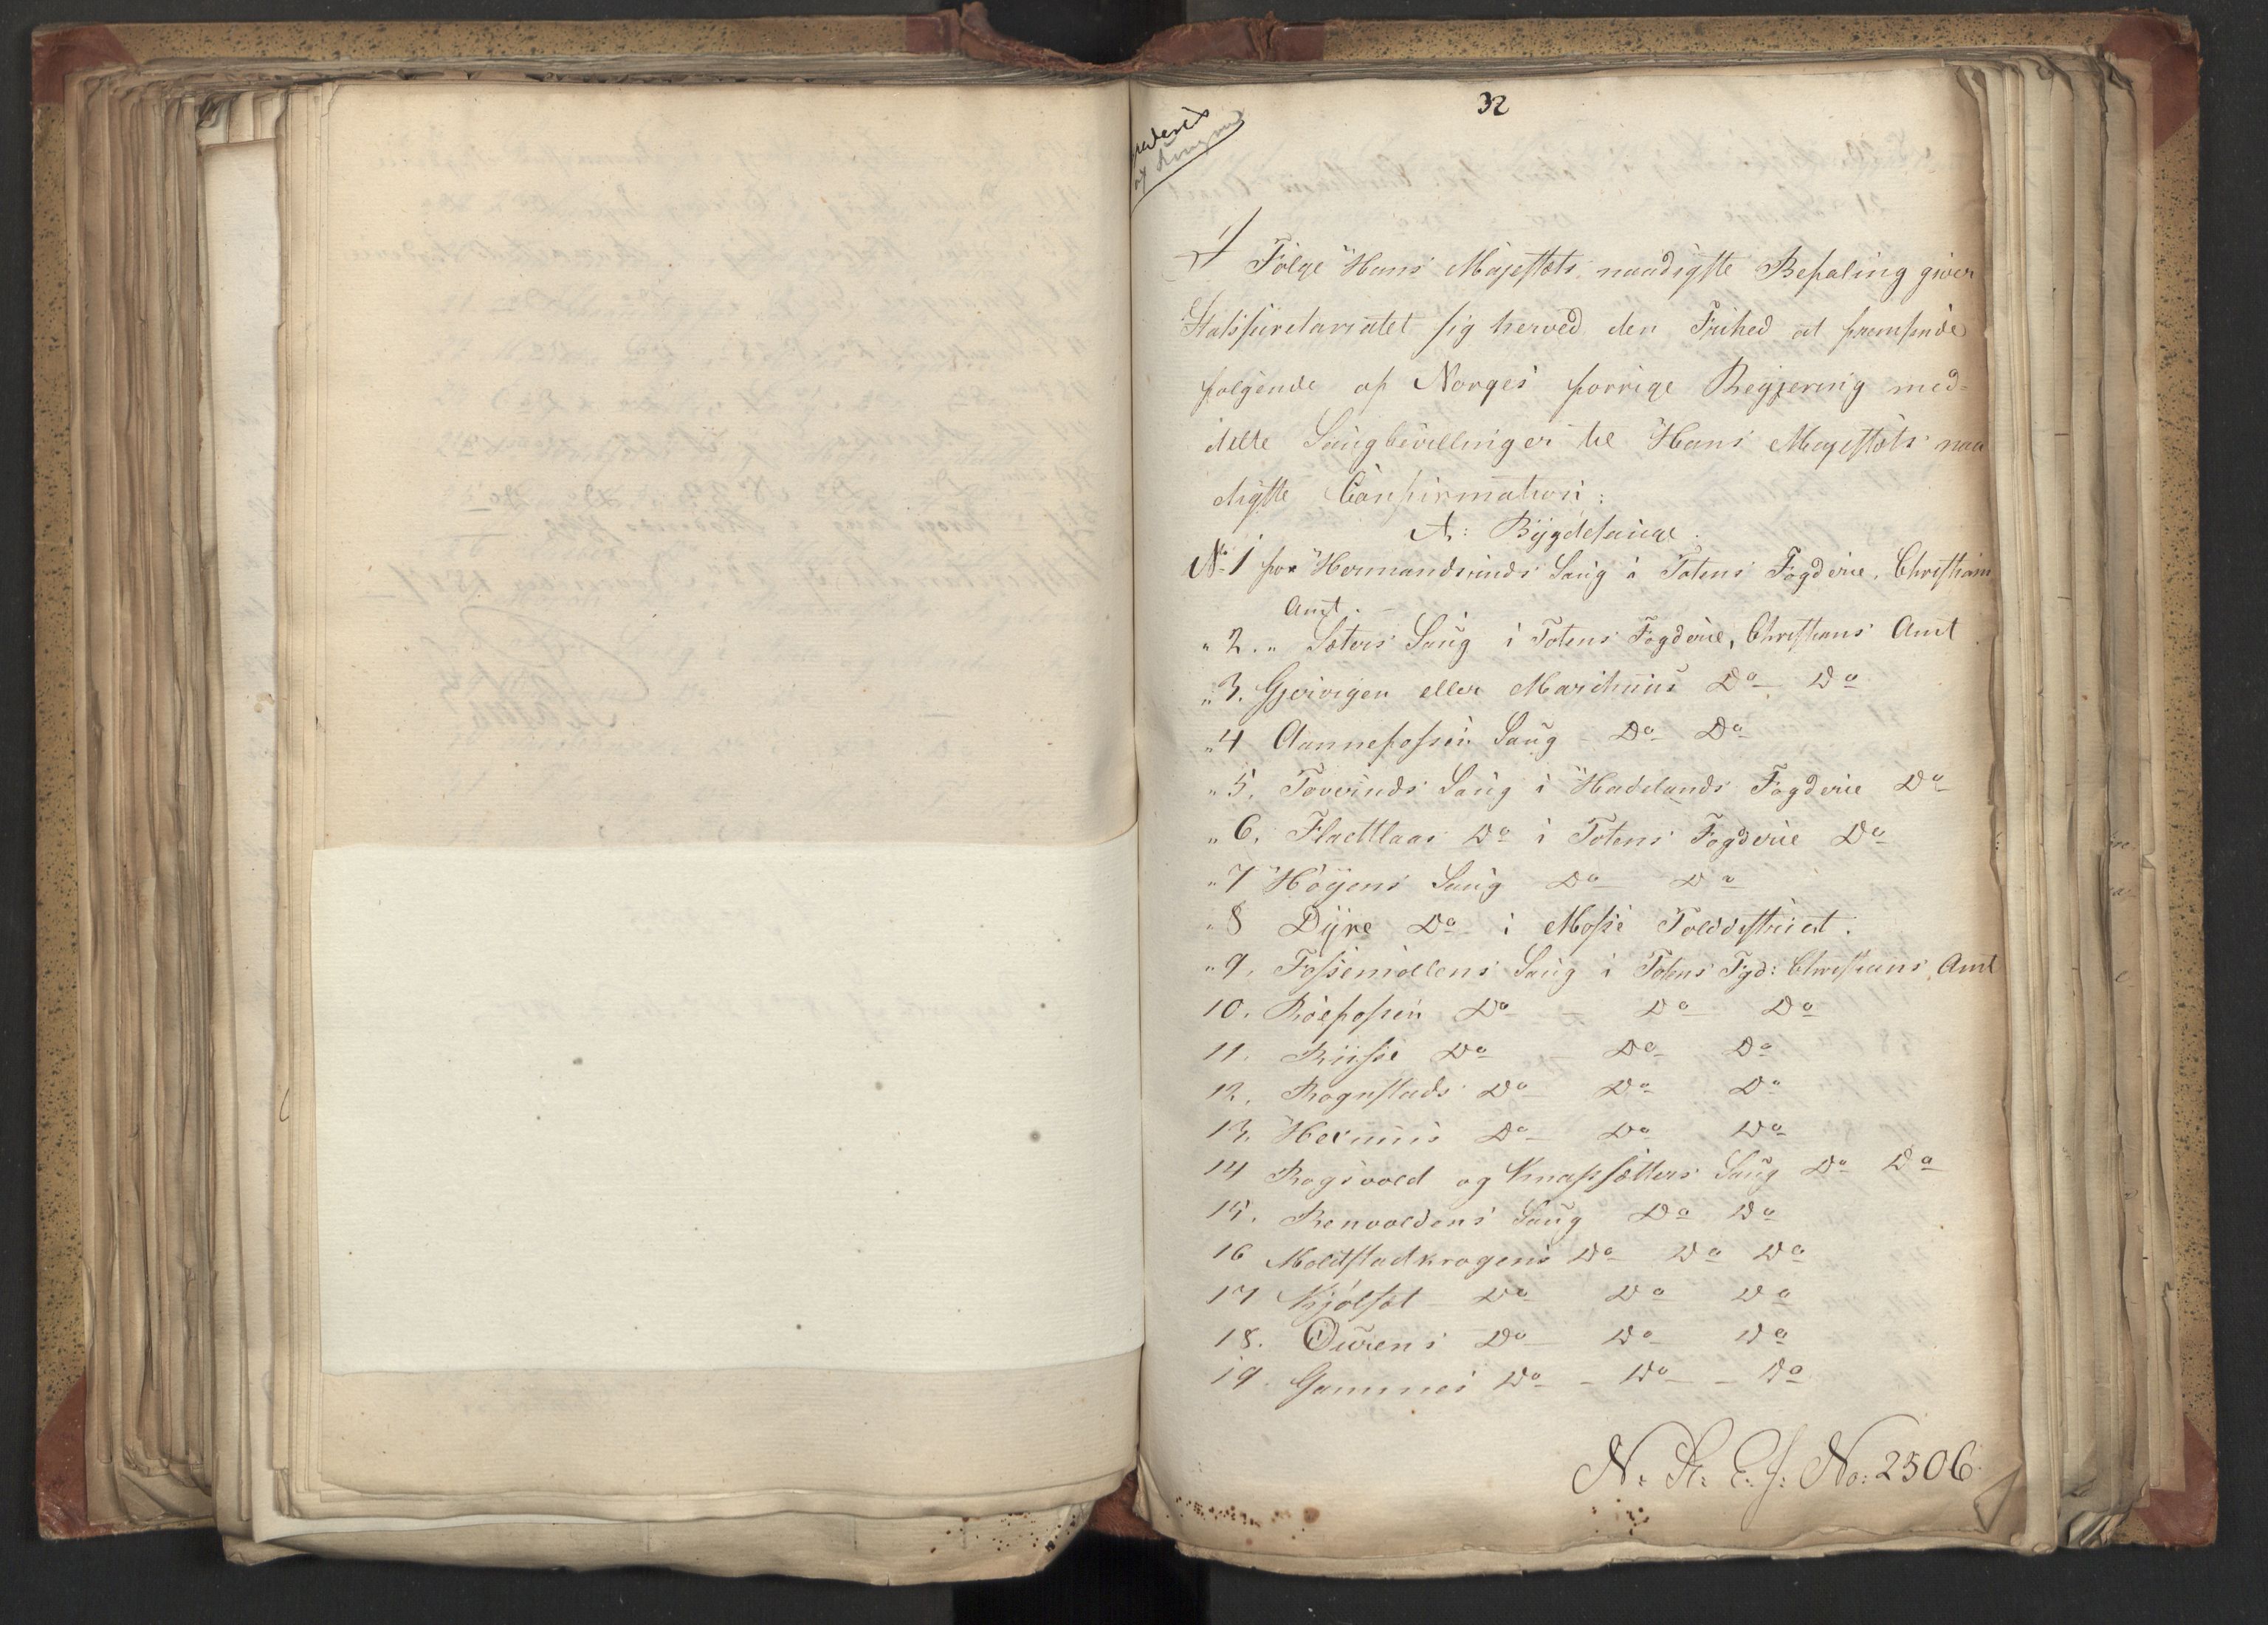 32
I Følge Hans Majestæts naadigste Befaling giver
Statssecretariatet sig herved den Frihed at fremsende
følgende af Norges forrige Regjering med-
deelte Saugbevillinger til Hans Majestæts naa
digste Confirmation:
A: Bygdesauge.
No 1 for Hermandsrunds Saug i Totens Fogderie, Christians
Amt. -
" 2. " Sæters Saug i Totens Fogderie, Christians Amt
" 3. Gjøvigen eller Marihuus Do Do
" 4 Aannefossen Saug - Do Do
" 5. Toverunds Saug i Hadelands Fogderie Do
" 6. Flattlaas Do i Totens Fogderie Do
" 7 Høyens Saug Do Do
" 8 Dyre Do i Mosse Tolddistrict.
" 9. Fossemøllens Saug i Totens Fgd: Christians Amt
10. Roefossen Do - Do Do
11. Riise Do - Do Do
12. Rognstads Do Do Do
13. Hexums Do Do Do
14 Rogsvold og Knapsætters Saug Do Do
15. Renvoldens Saug Do Do
16 Moldstadkragens Do Do Do
17 Kjølset - Do Do Do
18. Øurens Do Do Do
19. Gammes Do - Do - Do
N. St. E. J. No: 2506